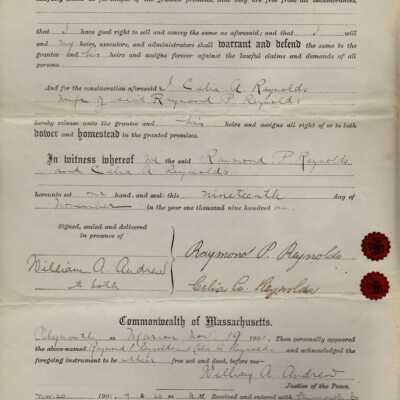 that I have good right to sell and convey the same as aforesaid; and that I will
and my heirs, executors, and administrators shall warrant and defend the same to the
grantee and his heirs and assigns forever against the lawful claims and demands of all
persons
And for the consideration aforesaid I Celia A Reynolds
wife of said Raymond P. Reynolds
hereby release unto the grantee and his heirs and assigns all right of or to both
dower and homestead in the granted premises.
In witness whereof we the said Raymond P. Reynolds
and Celia A Reynolds
hereunto set our hand and seal this nineteenth day of
November in the year one thousand nine hundred one.
Signed, sealed and delivered
in presence of
William A Andrew
to both
Raymond P. Reynolds
Celia A. Reynolds
Commonwealth of Massachusetts.
Plymouth ss Marion Nov. 19 1901. Then personally appeared
the above-named Raymond P. Reynolds Celia A. Reynolds and acknowledged the
foregoing instrument to be their free act and deed, before me—
William A. Andrew
Justice of the Peace.
Nov. 20 1901, 9 M. Received and entered with